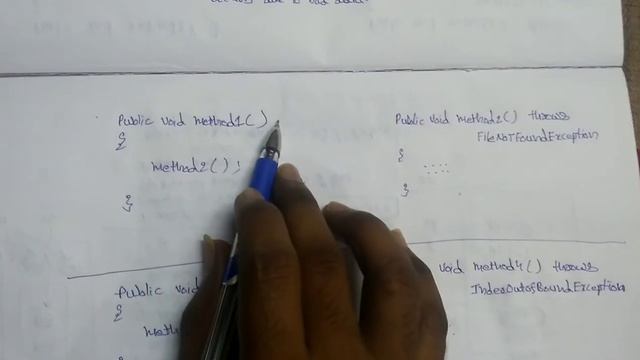 Public void method1()
{
method2();
}
Public void method2() throws
FileNotFoundException
{
.....
}
Public void
{
void method4() throws
IndexOutofBoundException